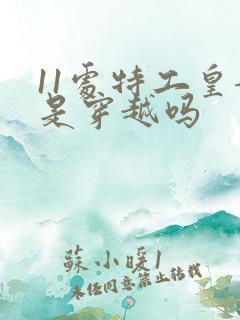 11處特工皇
是穿越吗
蘇小暖1
未经同意禁止转载